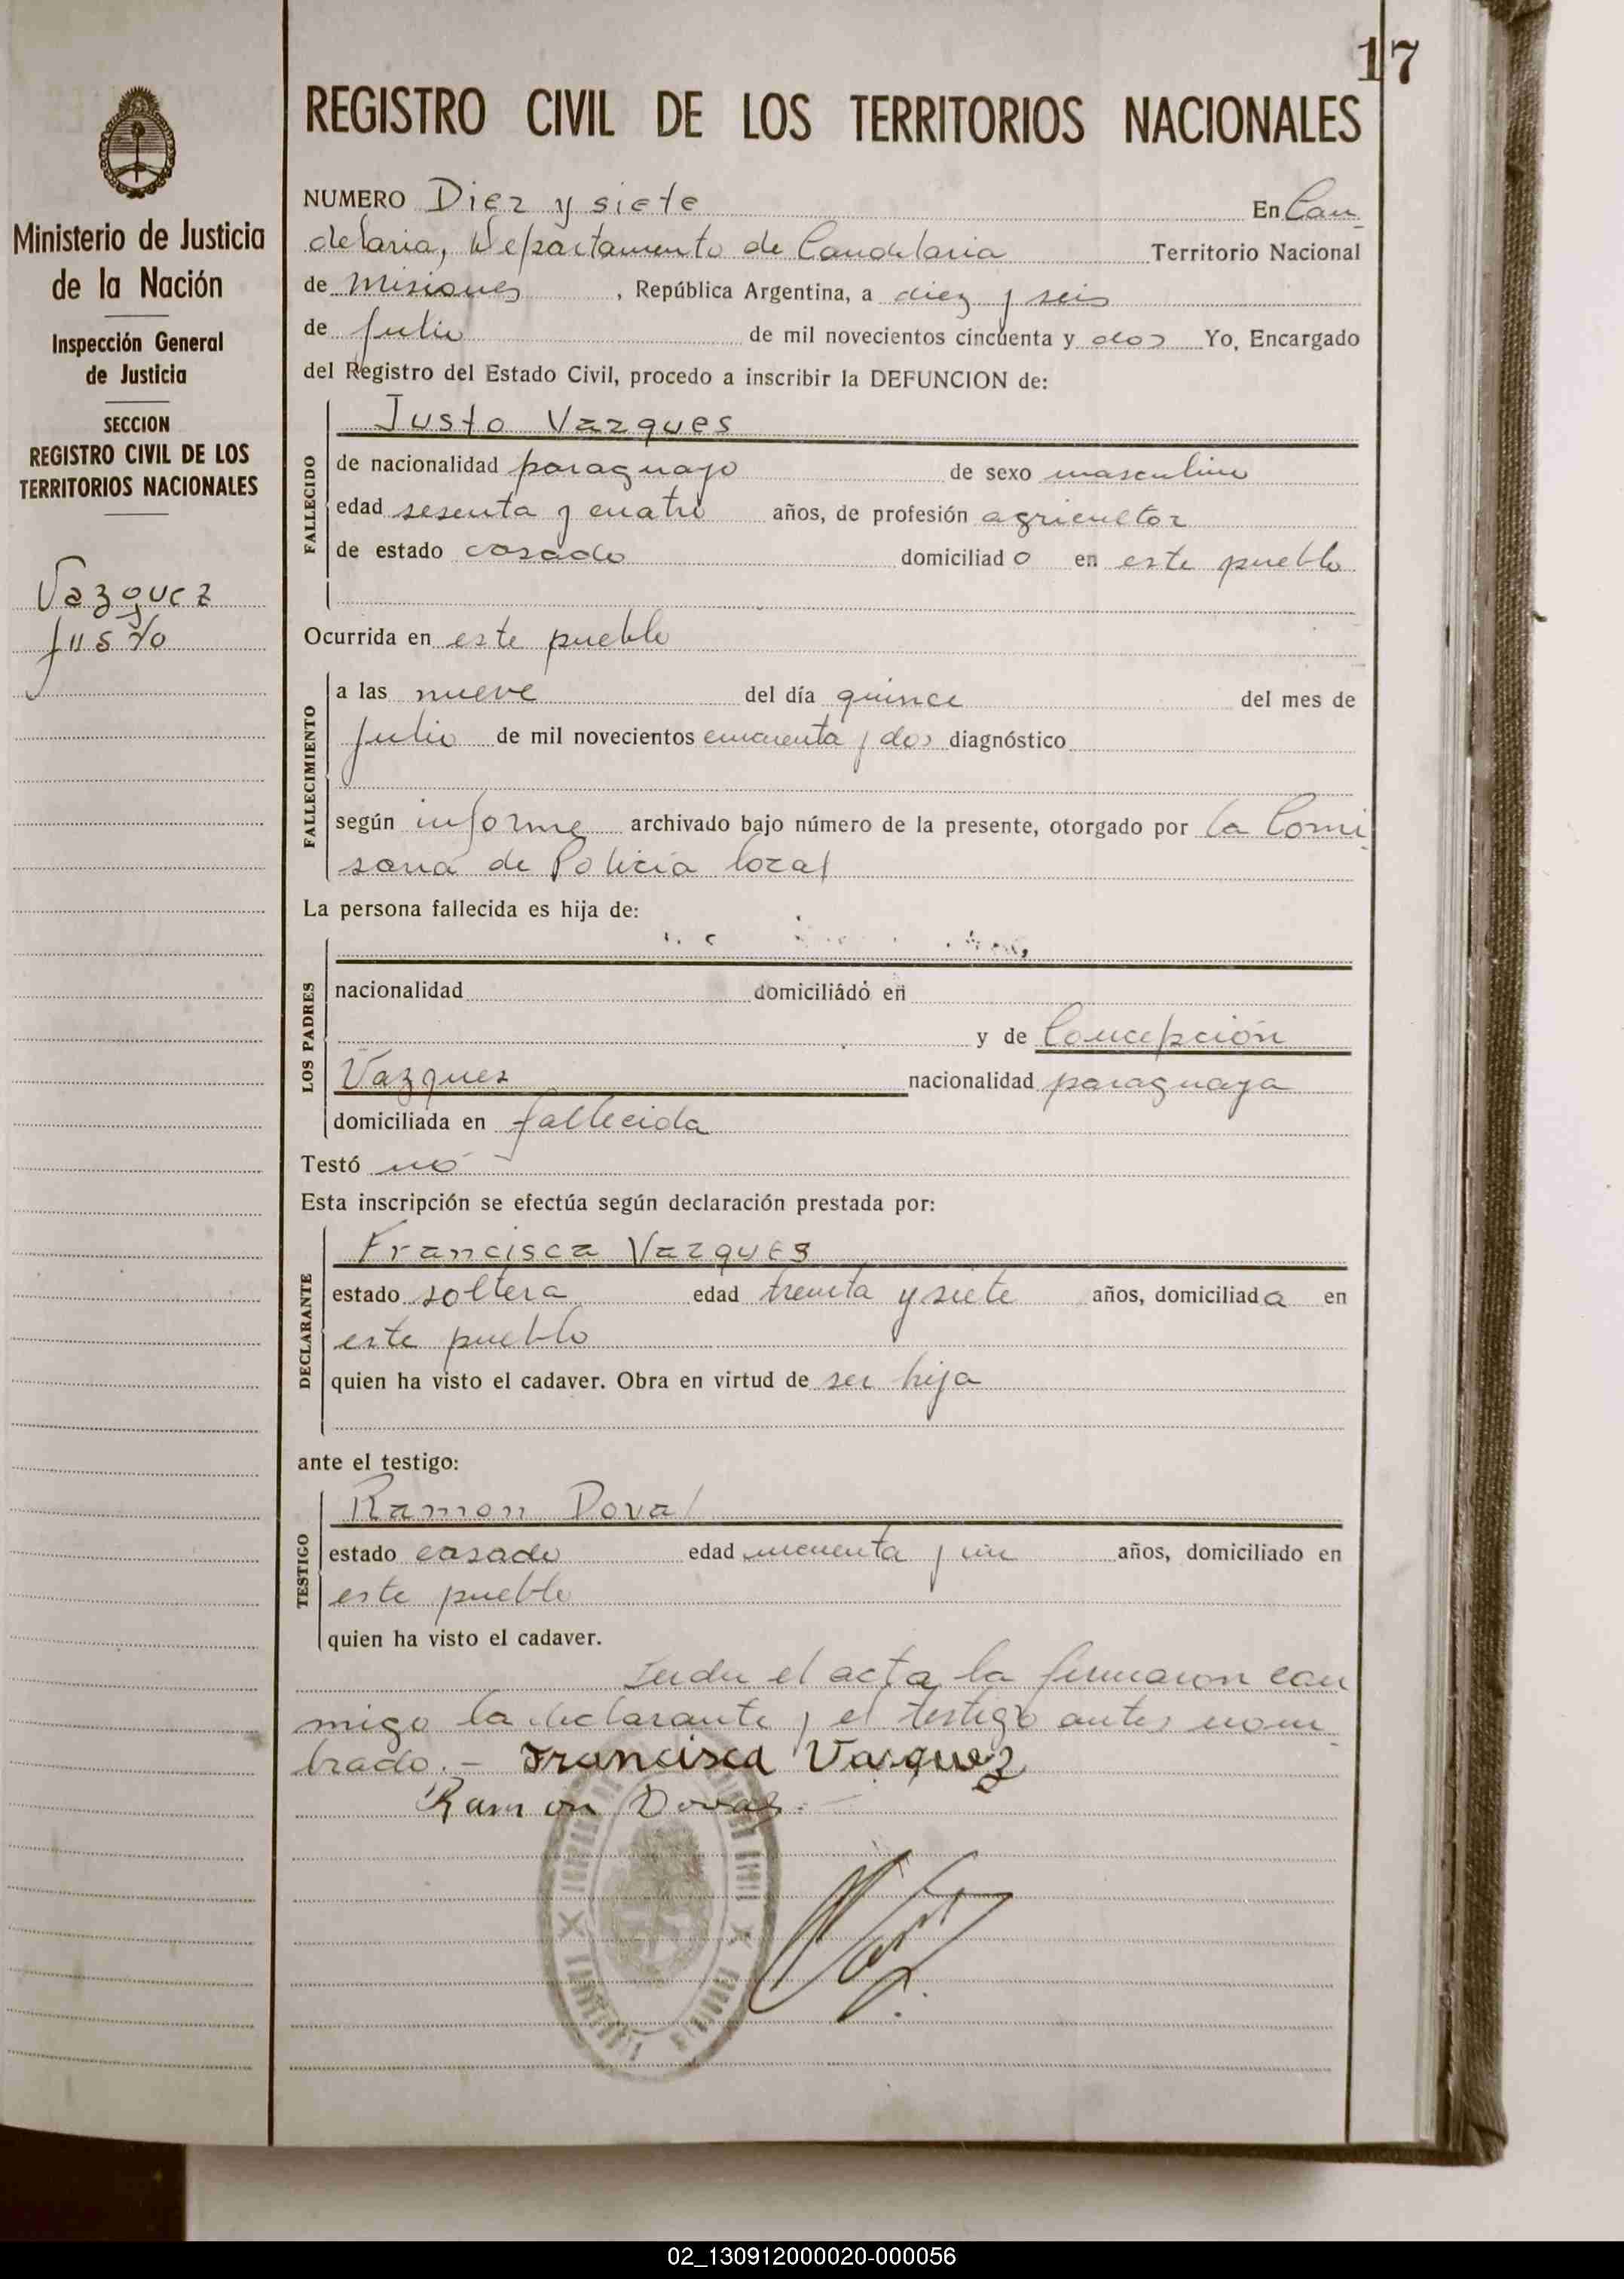 17
REGISTRO CIVIL DE LOS TERRITORIOS NACIONALES
Ministerio de Justicia
de la Nación
Inspección General
de Justicia
SECCION
REGISTRO CIVIL DE LOS
TERRITORIOS NACIONALES
Vazquez
Justo
NUMERO Diez y siete En Can-
delaria, Departamento de Candelaria Territorio Nacional
de Misiones, República Argentina, a diez y seis
de Julio de mil novecientos cincuenta y dos Yo, Encargado
del Registro del Estado Civil, procedo a inscribir la DEFUNCION de:
FALLECIDO
Justo Vazques
de nacionalidad paraguayo de sexo masculino
edad sesenta y cuatro años, de profesión agricultor
de estado casado domiciliado en este pueblo
Ocurrida en este pueblo
FALLECIMIENTO
a las nueve del día quince del mes de
Julio de mil novecientos cincuenta y dos diagnóstico
según informe archivado bajo número de la presente, otorgado por la Comi-
saria de Policía local
La persona fallecida es hija de:
LOS PADRES
nacionalidad domiciliado en
y de Concepción
Vazquez nacionalidad paraguaya
domiciliada en fallecida
Testó nó
Esta inscripción se efectúa según declaración prestada por:
DECLARANTE
Francisca Vazques
estado soltera edad treinta y siete años, domiciliada en
este pueblo
quien ha visto el cadaver. Obra en virtud de ser hija
ante el testigo:
TESTIGO
Ramon Doval
estado casado edad cincuenta y un años, domiciliado en
este pueblo
quien ha visto el cadaver.
el acta la firmaron con
migo la declarante y el testigo antes nom-
brado.- Francisca Vasquez
Ramon Doval.-
02_130912000020-000056